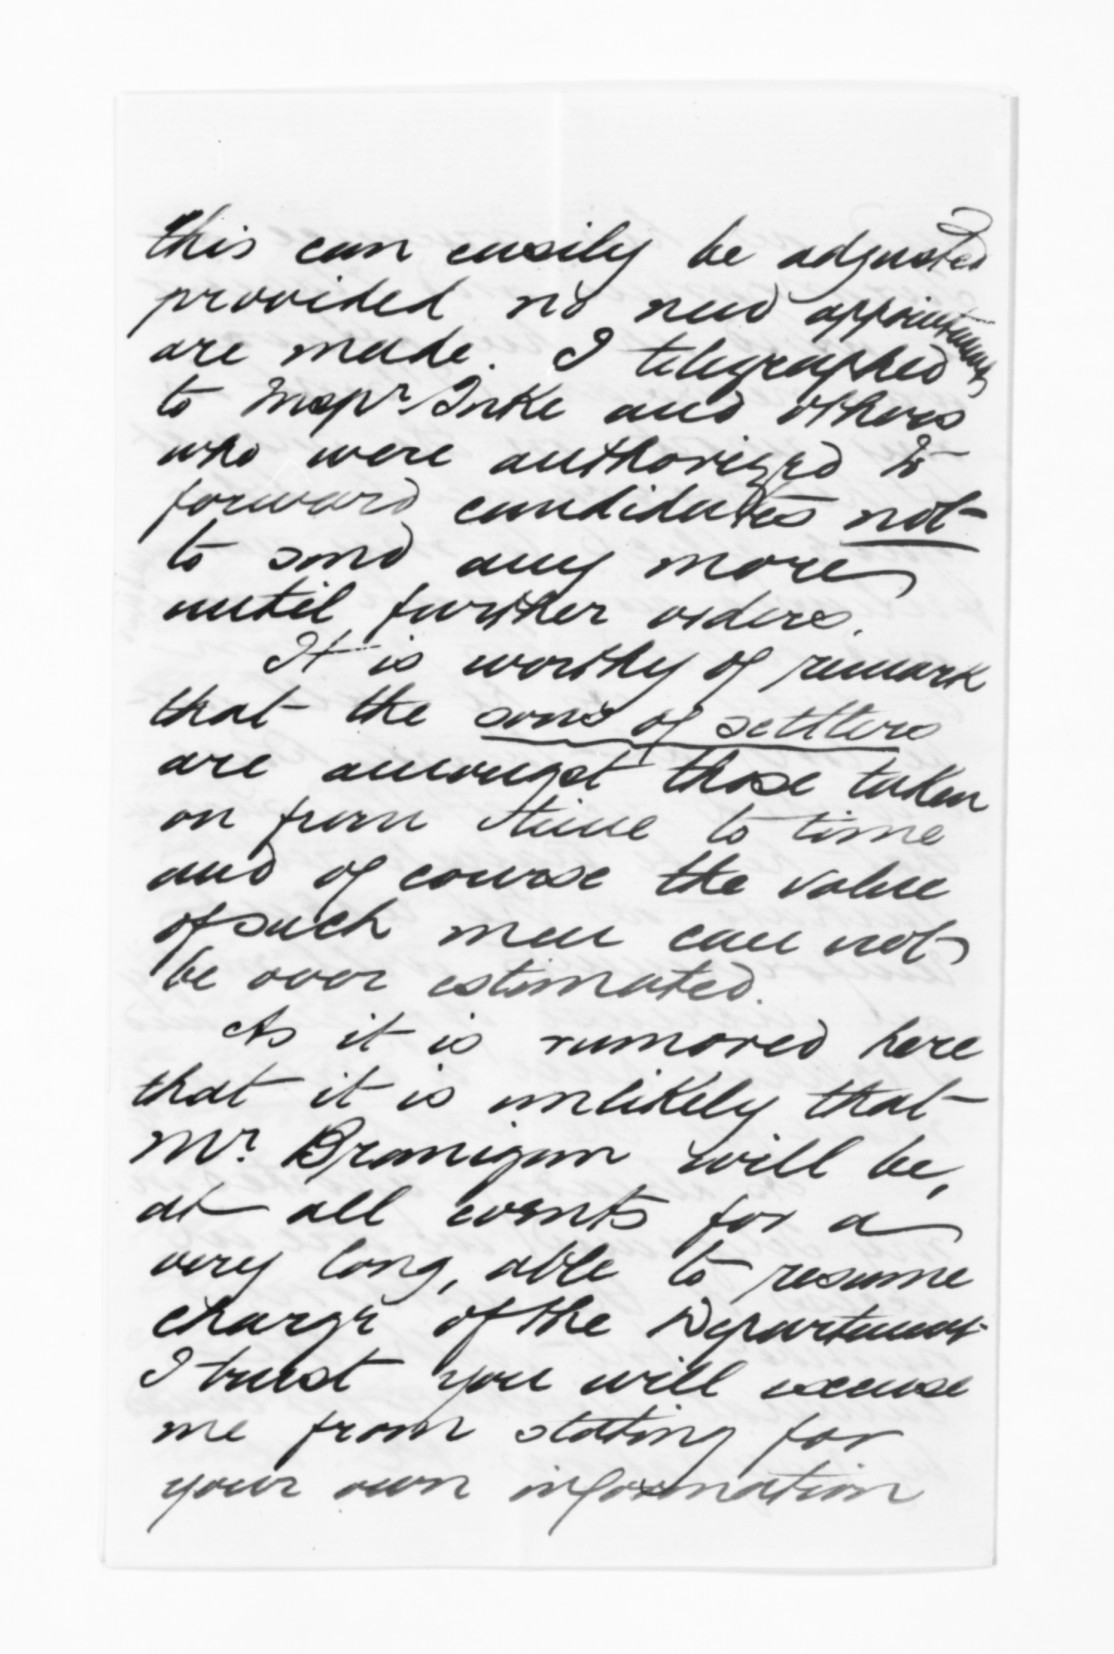 this can easily be adjusted
provided no new appointments
are made. I telegraphed
to Inspr. Tuke and others
who were authorized to
forward candidates not
to send any more
until further orders.
It is worthy of remark
that the sons of settlers
are amongst those taken
on from time to time
and of course the value
of such men can not
be over estimated.
As it is rumored here
that it is unlikely that
Mr. Branigan will be,
at all events for a
very long, able to resume
charge of the Department
I trust you will excuse
me from stating for
your own information